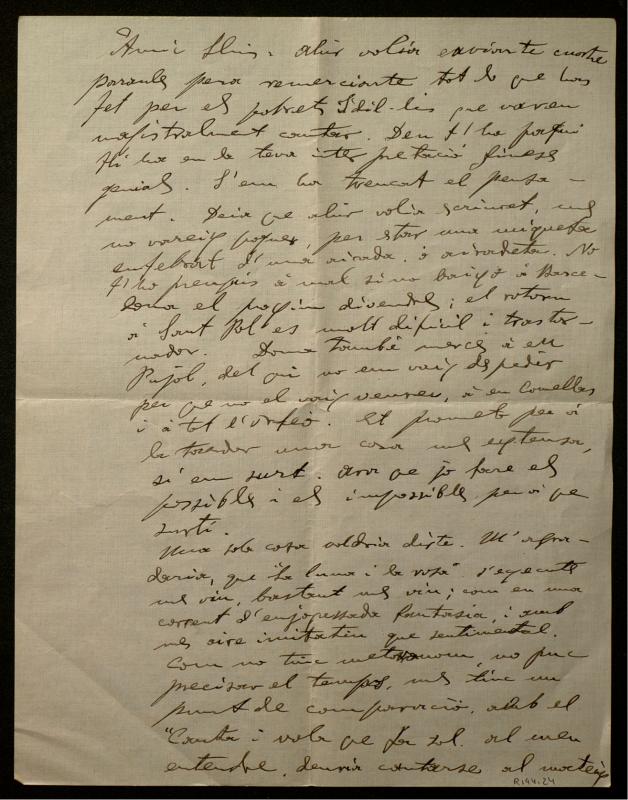 Amic Lluis. ahir volia enviarte cuatre
paraules pera remerciarte tot lo que has
fet per els pobrets Idil-lis que vareu
magistralment cantar. Deu t'ho pagui
Hi ha en la teva interpretació fineses
genials. S'em ha trencat el pensa-
ment. Deia que ahir volia escriuret, mes
no vareig poguer, per estar una miqueta
enfebrat d'una airada, ó airadeta. No
t'ho prenguis á mal si no baixo á Barce-
lona el proxim divendres; el retorn
á Sant Pol es molt dificil i trastor-
nador. Dona també mercès á en
Pujol, del qui no em vaig despedir
per que no el vaig veureu, á en Comellas
i á tot l'Orfeó. Et prometo per á
la tardor una cosa mes extensa,
si em surt. Ara que jo faré els
possibles i els impossibles per á que
surti.
Una sola cosa voldria dirte. M'agra-
daria, que "La lluna i la rosa" s'execute
mes viu, bastant mes viu; com en una
corrent d'enjogassada fantasia, i amb
mes aire imitatiu que sentimental.
Com no tinc metronom, no puc
precisar el temps, mes tinc un
punt de comparació, amb el
"Canta i vola que fa sol. al meu
entendre, deuria cantarse al mateix
R.144.24